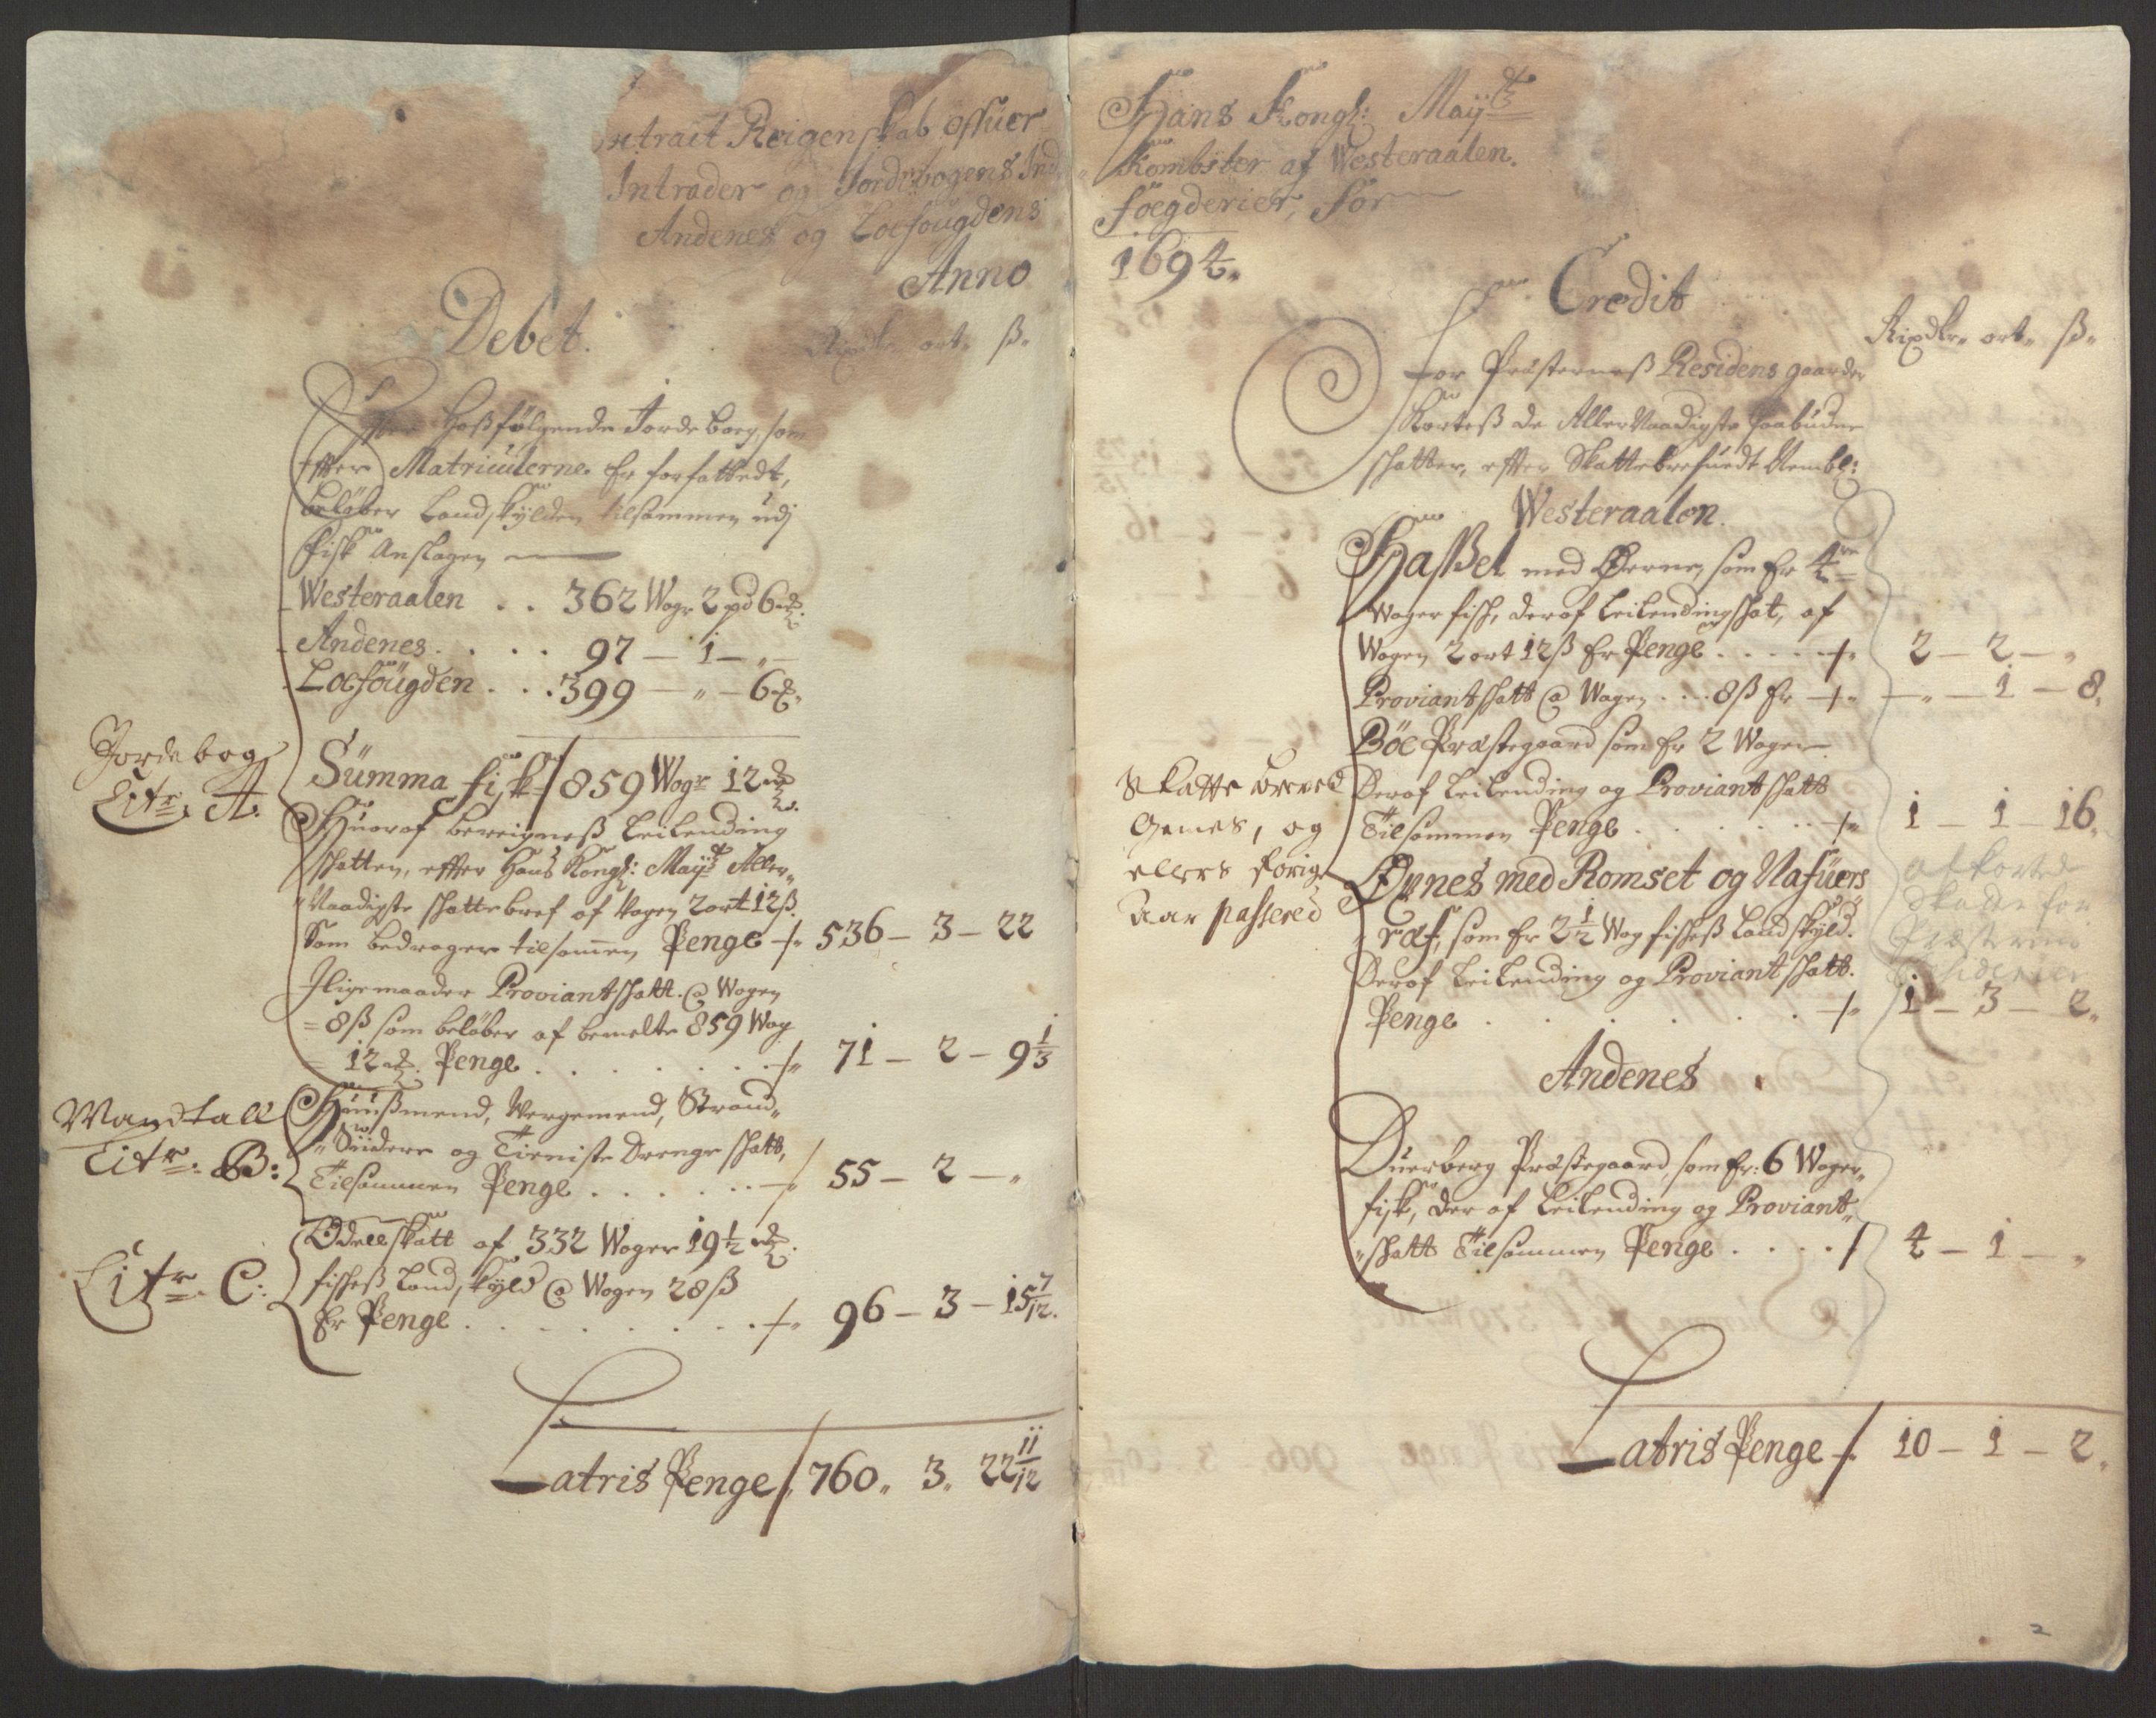 ntrait Reigenskab offuer
Intrader og Jordebogens Ind
Andenes og Loefougdens
Anno
Debet.
Rixdlr ort ß
Effter Hoßfølgende Jordebog, som
effter Matriculerne Er forfattedt,
beløber Landskylden tilsammen udj
fisk Anslagen
Westeraalen . . 362 Wogr 2 pd 6 ℔
Andenes . . . . 97 – 1 – „
Loefougden . . . 399 – „ – 6 ℔
Jordebog
Litr. A.
Summa fisk 859 Wogr 12 ℔
Huoraf bereigneß Leilending
skatten, effter Hans Kongl: Maytt Aller„
„Naadigste skattebref af Wogen 2 ort 12 ß.
Som bedrager tilsamen Penge 536 – 3 – 22
Iligemaader Proviantskatt @ Wogen
8 ß som beløber af bemelte 859 Wog
12 ℔ Penge . . . . . 71 – 2 – 9 1/3
Mandtall
Litr. B:
Huußmend, Wergemend, Strand„
„Siddere og Tieniste Drenge skatt,
Tilsammen Penge . . . . . 55 – 2 – „
Litr. C:
Odellskatt af 332 Woger 19 1/2 ℔
fiskeß Landskyld @ Wogen 28 ß
Er Penge . . . . . . . . 96 – 3 – 15 7/12.
Latris Penge 760„ 3„ 22 11/12
Hans Kongl: Maytt
Kombster af Westeraalen.
foegderier, for
1694„
Credit
Rixdlr„ ort„ ß„
For Præsterneß Residens gaarder
Korteß de Aller Naadigste paabudne
skatter, effter Skattebrefuedt Nembl:
Westeraalen.
Haßel med Øerne, som Er 4re
Woger fisk, deraf Leilendingskat, af
Wogen 2 ort 12 ß Er Penge . . . . 2 – 2 – „
Proviantskatt @ Wogen . . . 8 ß Er „ – 1 – 8„
Böe Præstegaard som Er 2 Woger
Deraf Leilending og Proviantskatt
Tilsammen Penge . . . . . . 1 – 1 – 16„
Skatte breved
Gemes, og
ellers forige
Aar passered
Øynes med Romset og Nafuers
ræf, som Er 2 1/2 Wog fiskeß Landskyld.
Deraf Leilending og Proviantskatt.
Penge . . . . . . 1 – 3 – 2„
afkorted
Skatte for
Præsternes
Andenes
Duerberg Præstegaard, som Er: 6 Woger„
fisk, der af Leilending og Proviant„
„skatt Tilsammen Penge . . . . 4 – 1 – „
Latris Penge 10 – 1 – 2„
2